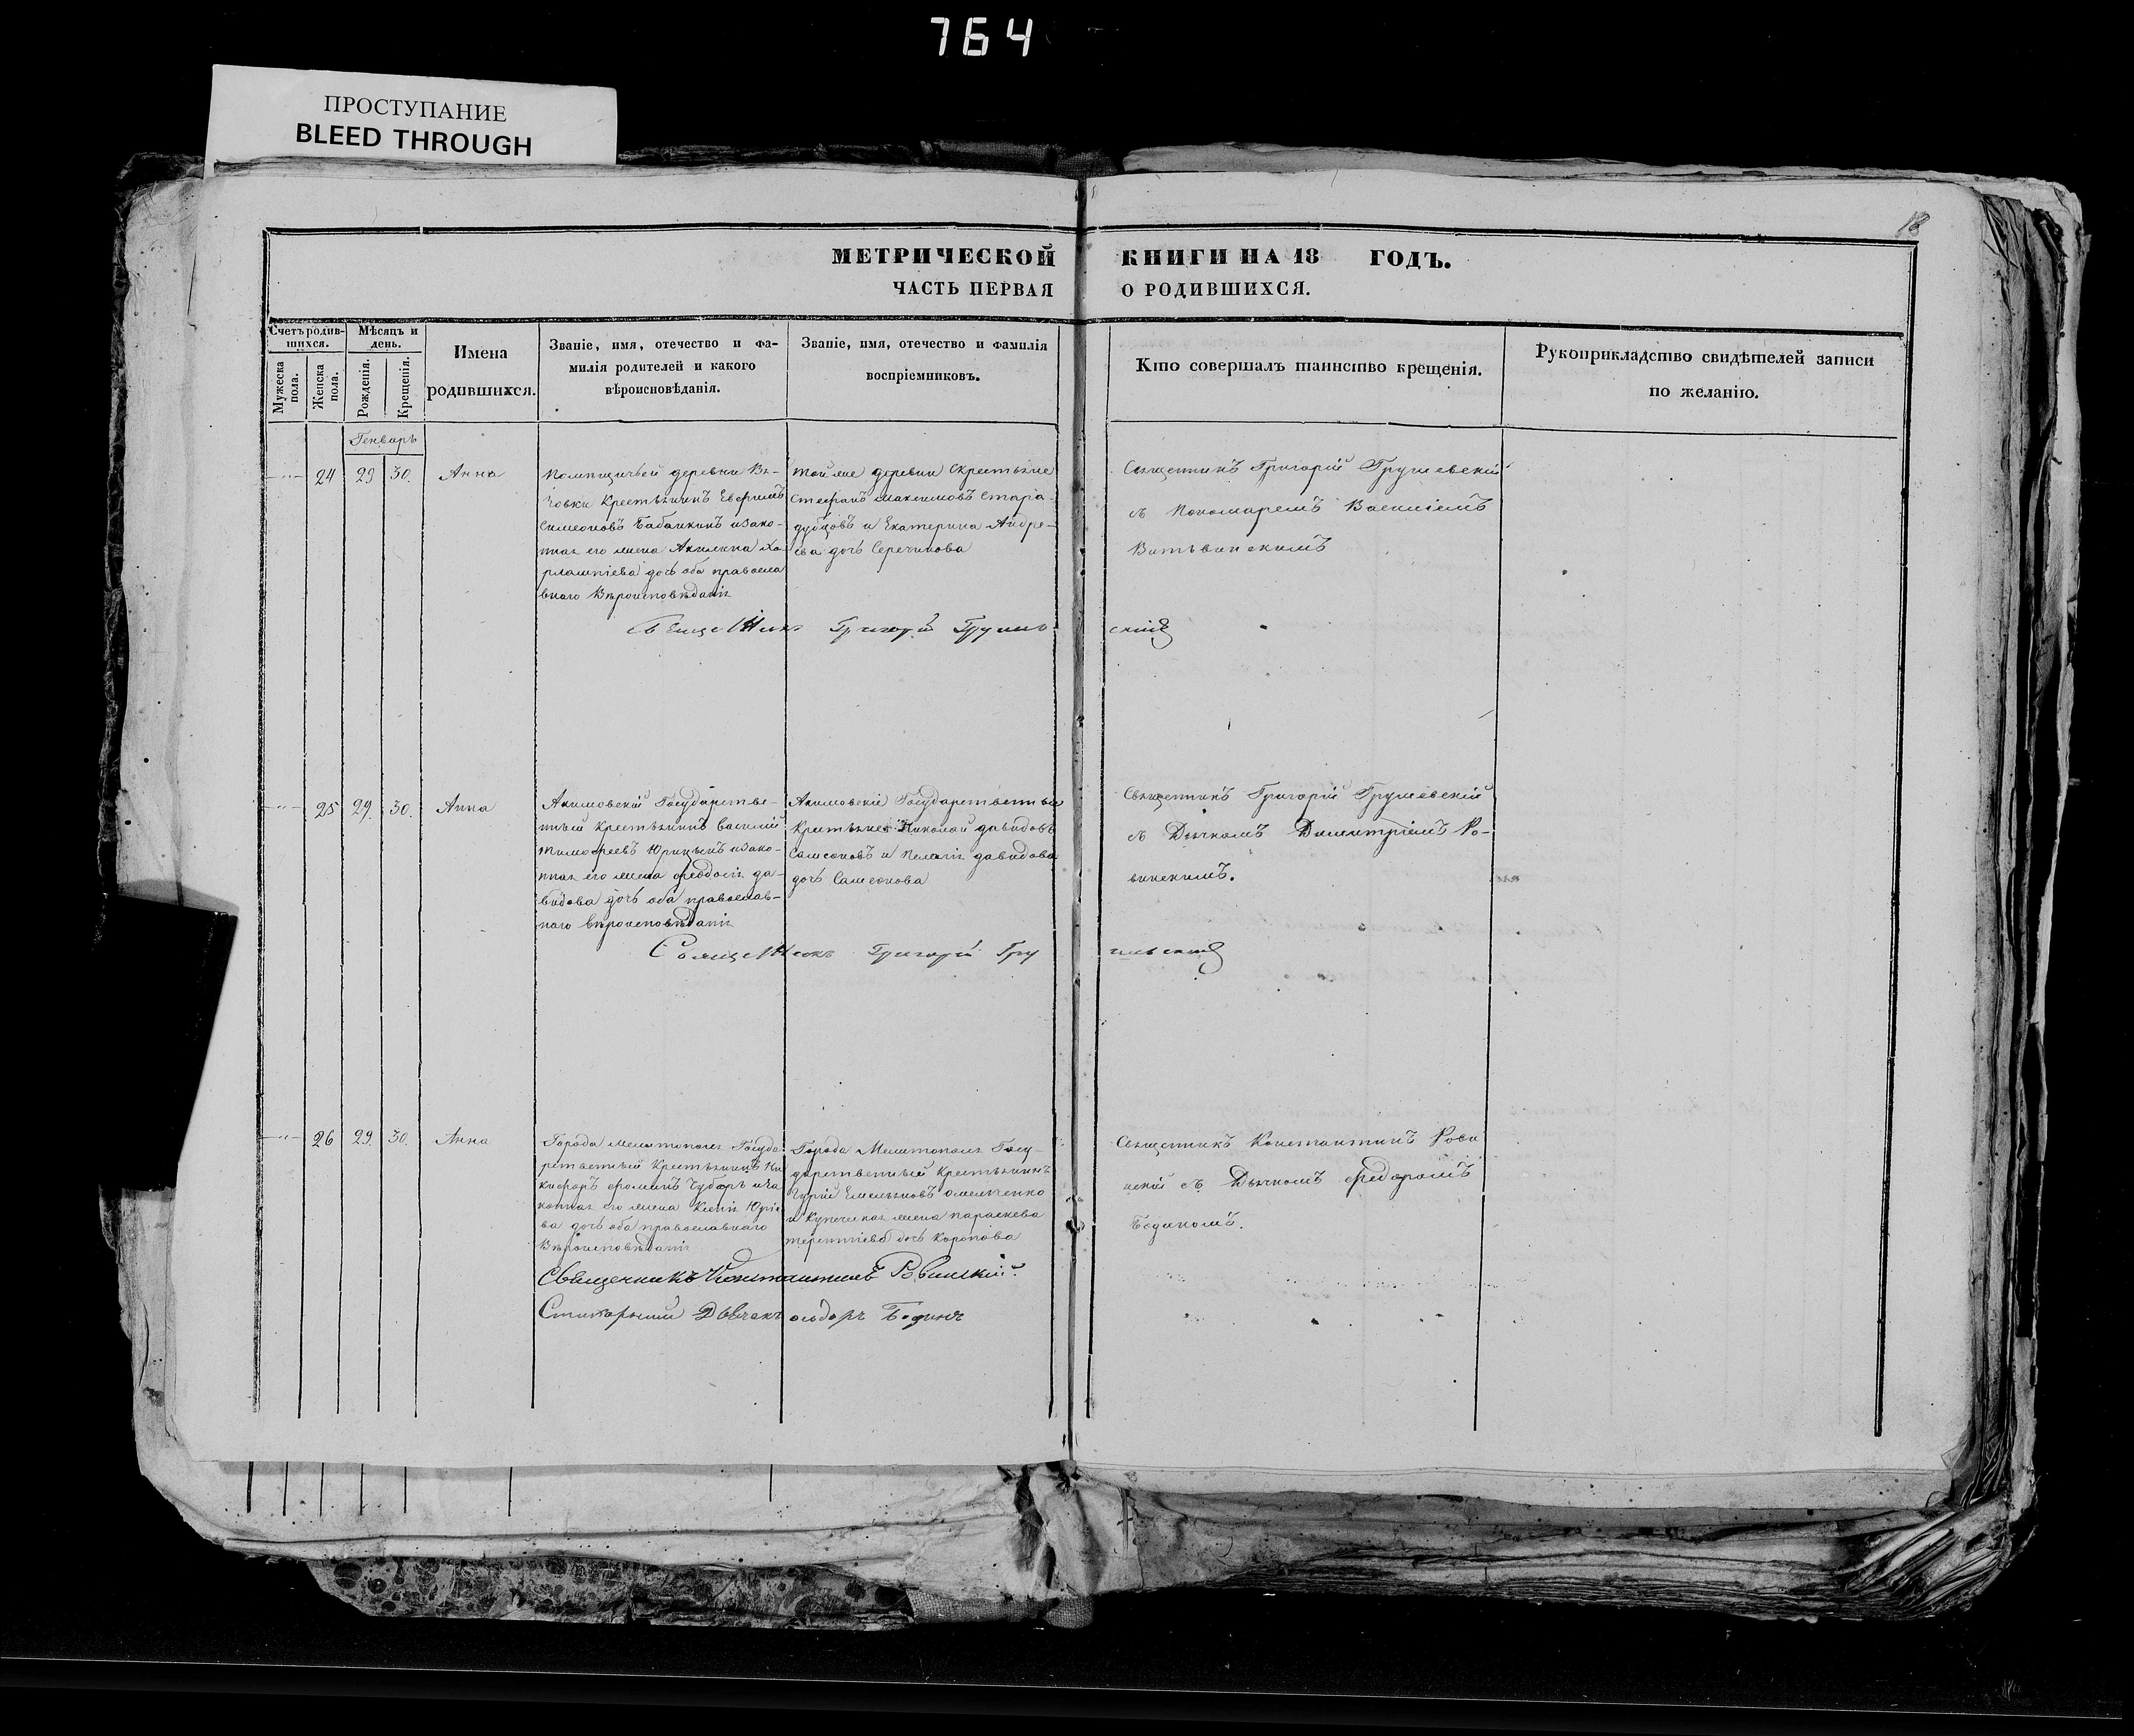 764
ПРОСТУПАНИЕ
BLEED THROUGH
18
МЕТРИЧЕСКОЙ КНИГИ НА 18 ГОДЪ.
ЧАСТЬ ПЕРВАЯ О РОДИВШИХСЯ.
Счетъ родив-
шихся.
Мужеска пола.
Женска пола.
Мѣсяцъ и
день.
Рожденія.
Крещенія.
Имена
родившихся.
Званіе, имя, отечество и фа-
милія родителей и какого
вѣроисновѣданія.
Званіе, имя, отечество и фамилія
воспріемниковъ.
Кто совершалъ таинство крещенія.
Рукоприкладство свидѣтелей записи
по желанію.
Генварь
24 29 30. Анна
Помѣщичьей деревни Вя-
човки Крестьянинъ Евфимъ
Симеоновъ Бабанинъ изако-
нная его жена Акилина Ха-
рлампіева дочь оба правосла
внаго Вѣроисповѣданія
тойже деревни Крестьяне
Стефанъ Максимовъ Стара-
дубцовъ и Екатерина Андре-
ева дочь
Священникъ Григорій Грушевскій
съ Пономаремъ Василіемъ
Священникъ Григорій Грушев-
скій
25 29. 30. Анна
Акимовскій Государстве-
нный Крестьянинъ Василій
Тимофеевъ Юрицынъ изако-
нная его жена Феодосія да-
видова дочь оба православ-
наго вѣроисповѣданія
Акимовскіе Государственные
Крестьяне Николай давидовъ
Самсоновъ и Пелагія давидова
дочь Самсонова
Священникъ Григорій Грушевскій
съ Дьячкомъ Димитріемъ Ро-
винскимъ.
Священникъ Григорій Гру
шевскій
26 29. 30. Анна
Города Мелитополя Госуда-
рственный Крестьянинъ Ни
кифоръ Фоминъ Чубарь иза
конная его жена Ксенія Юріе
ва дочь оба православнаго
Вѣроисповѣданія
Города Мелитополя Госу-
дарственный Крестьянинъ
Гурій Емельяновъ Омельченко
и Купеческая жена Параскева
терентіева дочь Коропова
Священникъ Константинъ Рови
нскій съ Дьячкомъ Федоромъ
Бодиномъ.
Священникъ Константинъ Ровинскій.
Стихарный Дьячекъ Ѳеодоръ Бодинъ